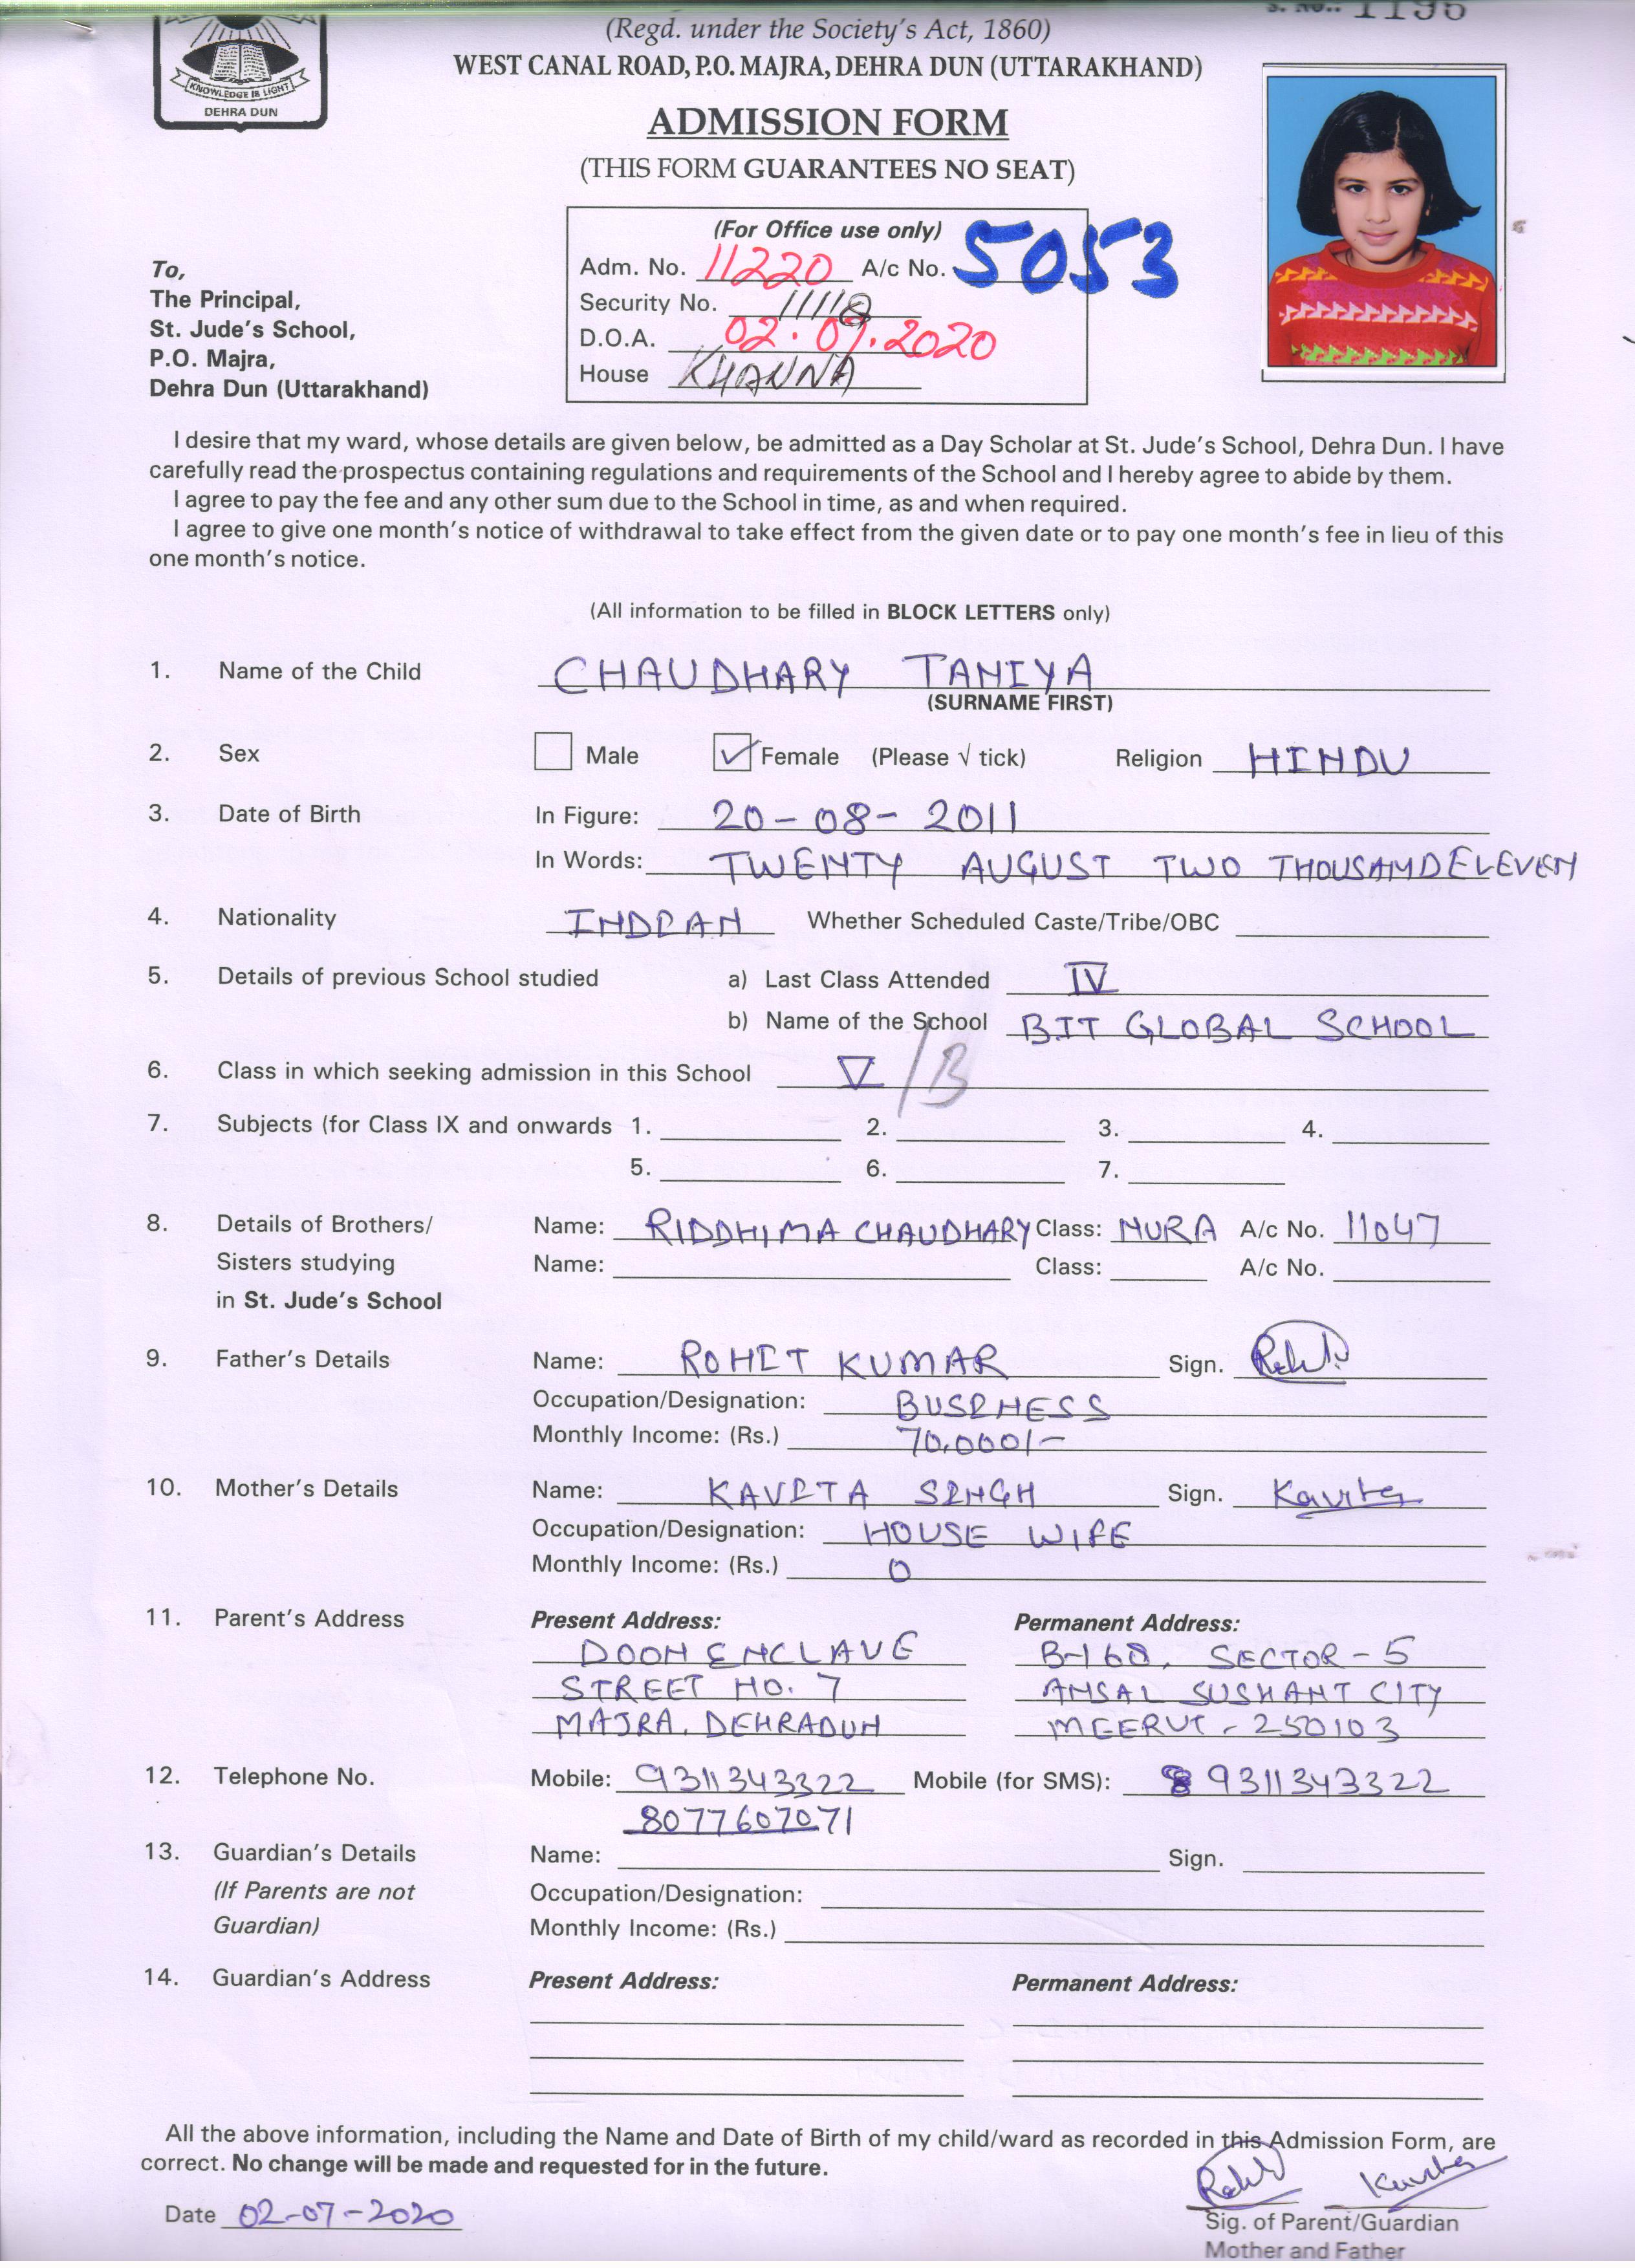 (Regd. under the Society's Act, 1860)
WEST CANAL ROAD, P.O. MAJRA, DEHRA DUN (UTTARAKHAND)
KNOWLEDGE IS LIGHT
DEHRA DUN
ADMISSION FORM
(THIS FORM GUARANTEES NO SEAT)
(For Office use only)
Adm. No. 11220 A/c No. 5053
Security No. 11118
D.O.A. 02.07.2020
House KHANNA
To,
The Principal,
St. Jude's School,
P.O. Majra,
Dehra Dun (Uttarakhand)
I desire that my ward, whose details are given below, be admitted as a Day Scholar at St. Jude's School, Dehra Dun. I have
carefully read the prospectus containing regulations and requirements of the School and I hereby agree to abide by them.
I agree to pay the fee and any other sum due to the School in time, as and when required.
I agree to give one month's notice of withdrawal to take effect from the given date or to pay one month's fee in lieu of this
one month's notice.
(All information to be filled in BLOCK LETTERS only)
1. Name of the Child CHAUDHARY TANIYA
(SURNAME FIRST)
2. Sex Male ✓ Female (Please √ tick) Religion HINDU
3. Date of Birth In Figure: 20-08-2011
In Words: TWENTY AUGUST TWO THOUSAMD ELEVEN
4. Nationality INDIAN Whether Scheduled Caste/Tribe/OBC
5. Details of previous School studied a) Last Class Attended IV
b) Name of the School B.I.T GLOBAL SCHOOL
6. Class in which seeking admission in this School V /B
7. Subjects (for Class IX and onwards 1. 2. 3. 4.
5. 6. 7.
8. Details of Brothers/ Name: RIDDHIMA CHAUDHARY Class: NURA A/c No. 11047
Sisters studying Name: Class: A/c No.
in St. Jude's School
9. Father's Details Name: ROHIT KUMAR Sign.
Occupation/Designation: BUSINESS
Monthly Income: (Rs.) 70,000/-
10. Mother's Details Name: KAVITA SINGH Sign. Kavita
Occupation/Designation: HOUSE WIFE
Monthly Income: (Rs.) 0
11. Parent's Address Present Address: Permanent Address:
DOON ENCLAVE B-160, SECTOR-5
STREET NO. 7 ANSAL SUSHANT CITY
MAJRA, DEHRADUN MEERUT - 250103
12. Telephone No. Mobile: 9311343322 Mobile (for SMS): 9311343322
8077607071
13. Guardian's Details Name: Sign.
(If Parents are not Occupation/Designation:
Guardian) Monthly Income: (Rs.)
14. Guardian's Address Present Address: Permanent Address:
All the above information, including the Name and Date of Birth of my child/ward as recorded in this Admission Form, are
correct. No change will be made and requested for in the future.
Date 02-07-2020
Sig. of Parent/Guardian
Mother and Father